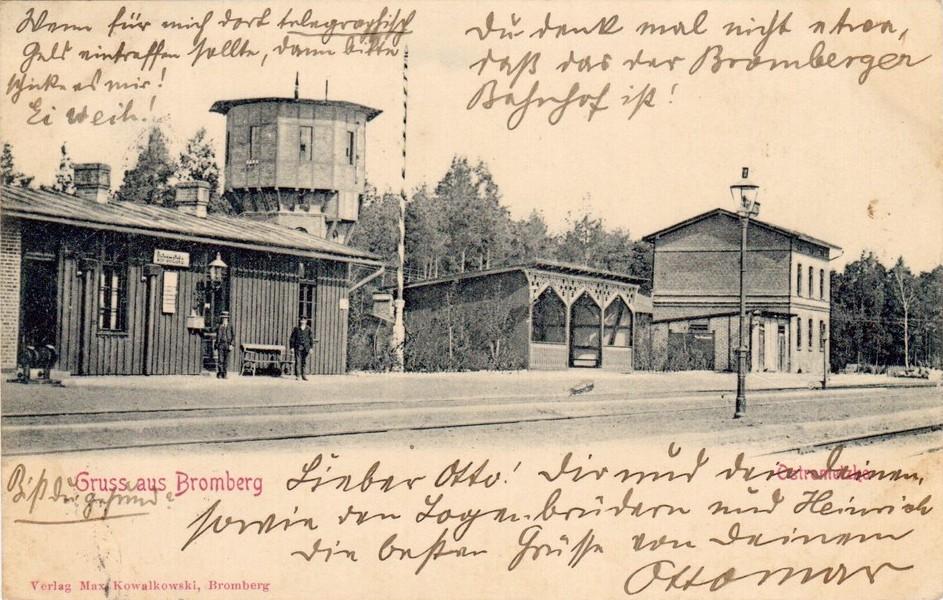 Wenn für mich dort telegraphisch
Geld eintreffen sollte, dann bitte
schicke es mir!
Ei weih!
Du denk mal nicht etwa,
daß das der Bromberger
Bahnhof ist!
Ostrometzko
Gruss aus Bromberg
Ostrometzko
Bist du gesund?
Lieber Otto! Dir und den deinen,
sowie den Logenbrüdern und Heinrich
die besten Grüsse von deinem
Ottomar
Verlag Max Kowalkowski, Bromberg